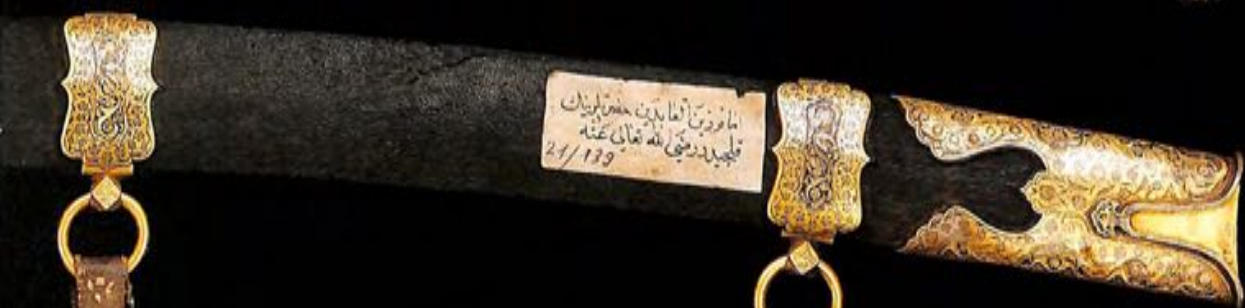 امام زين العابدين حضرتلرينك
قليجيدر رضي الله تعالى عنه
21/139